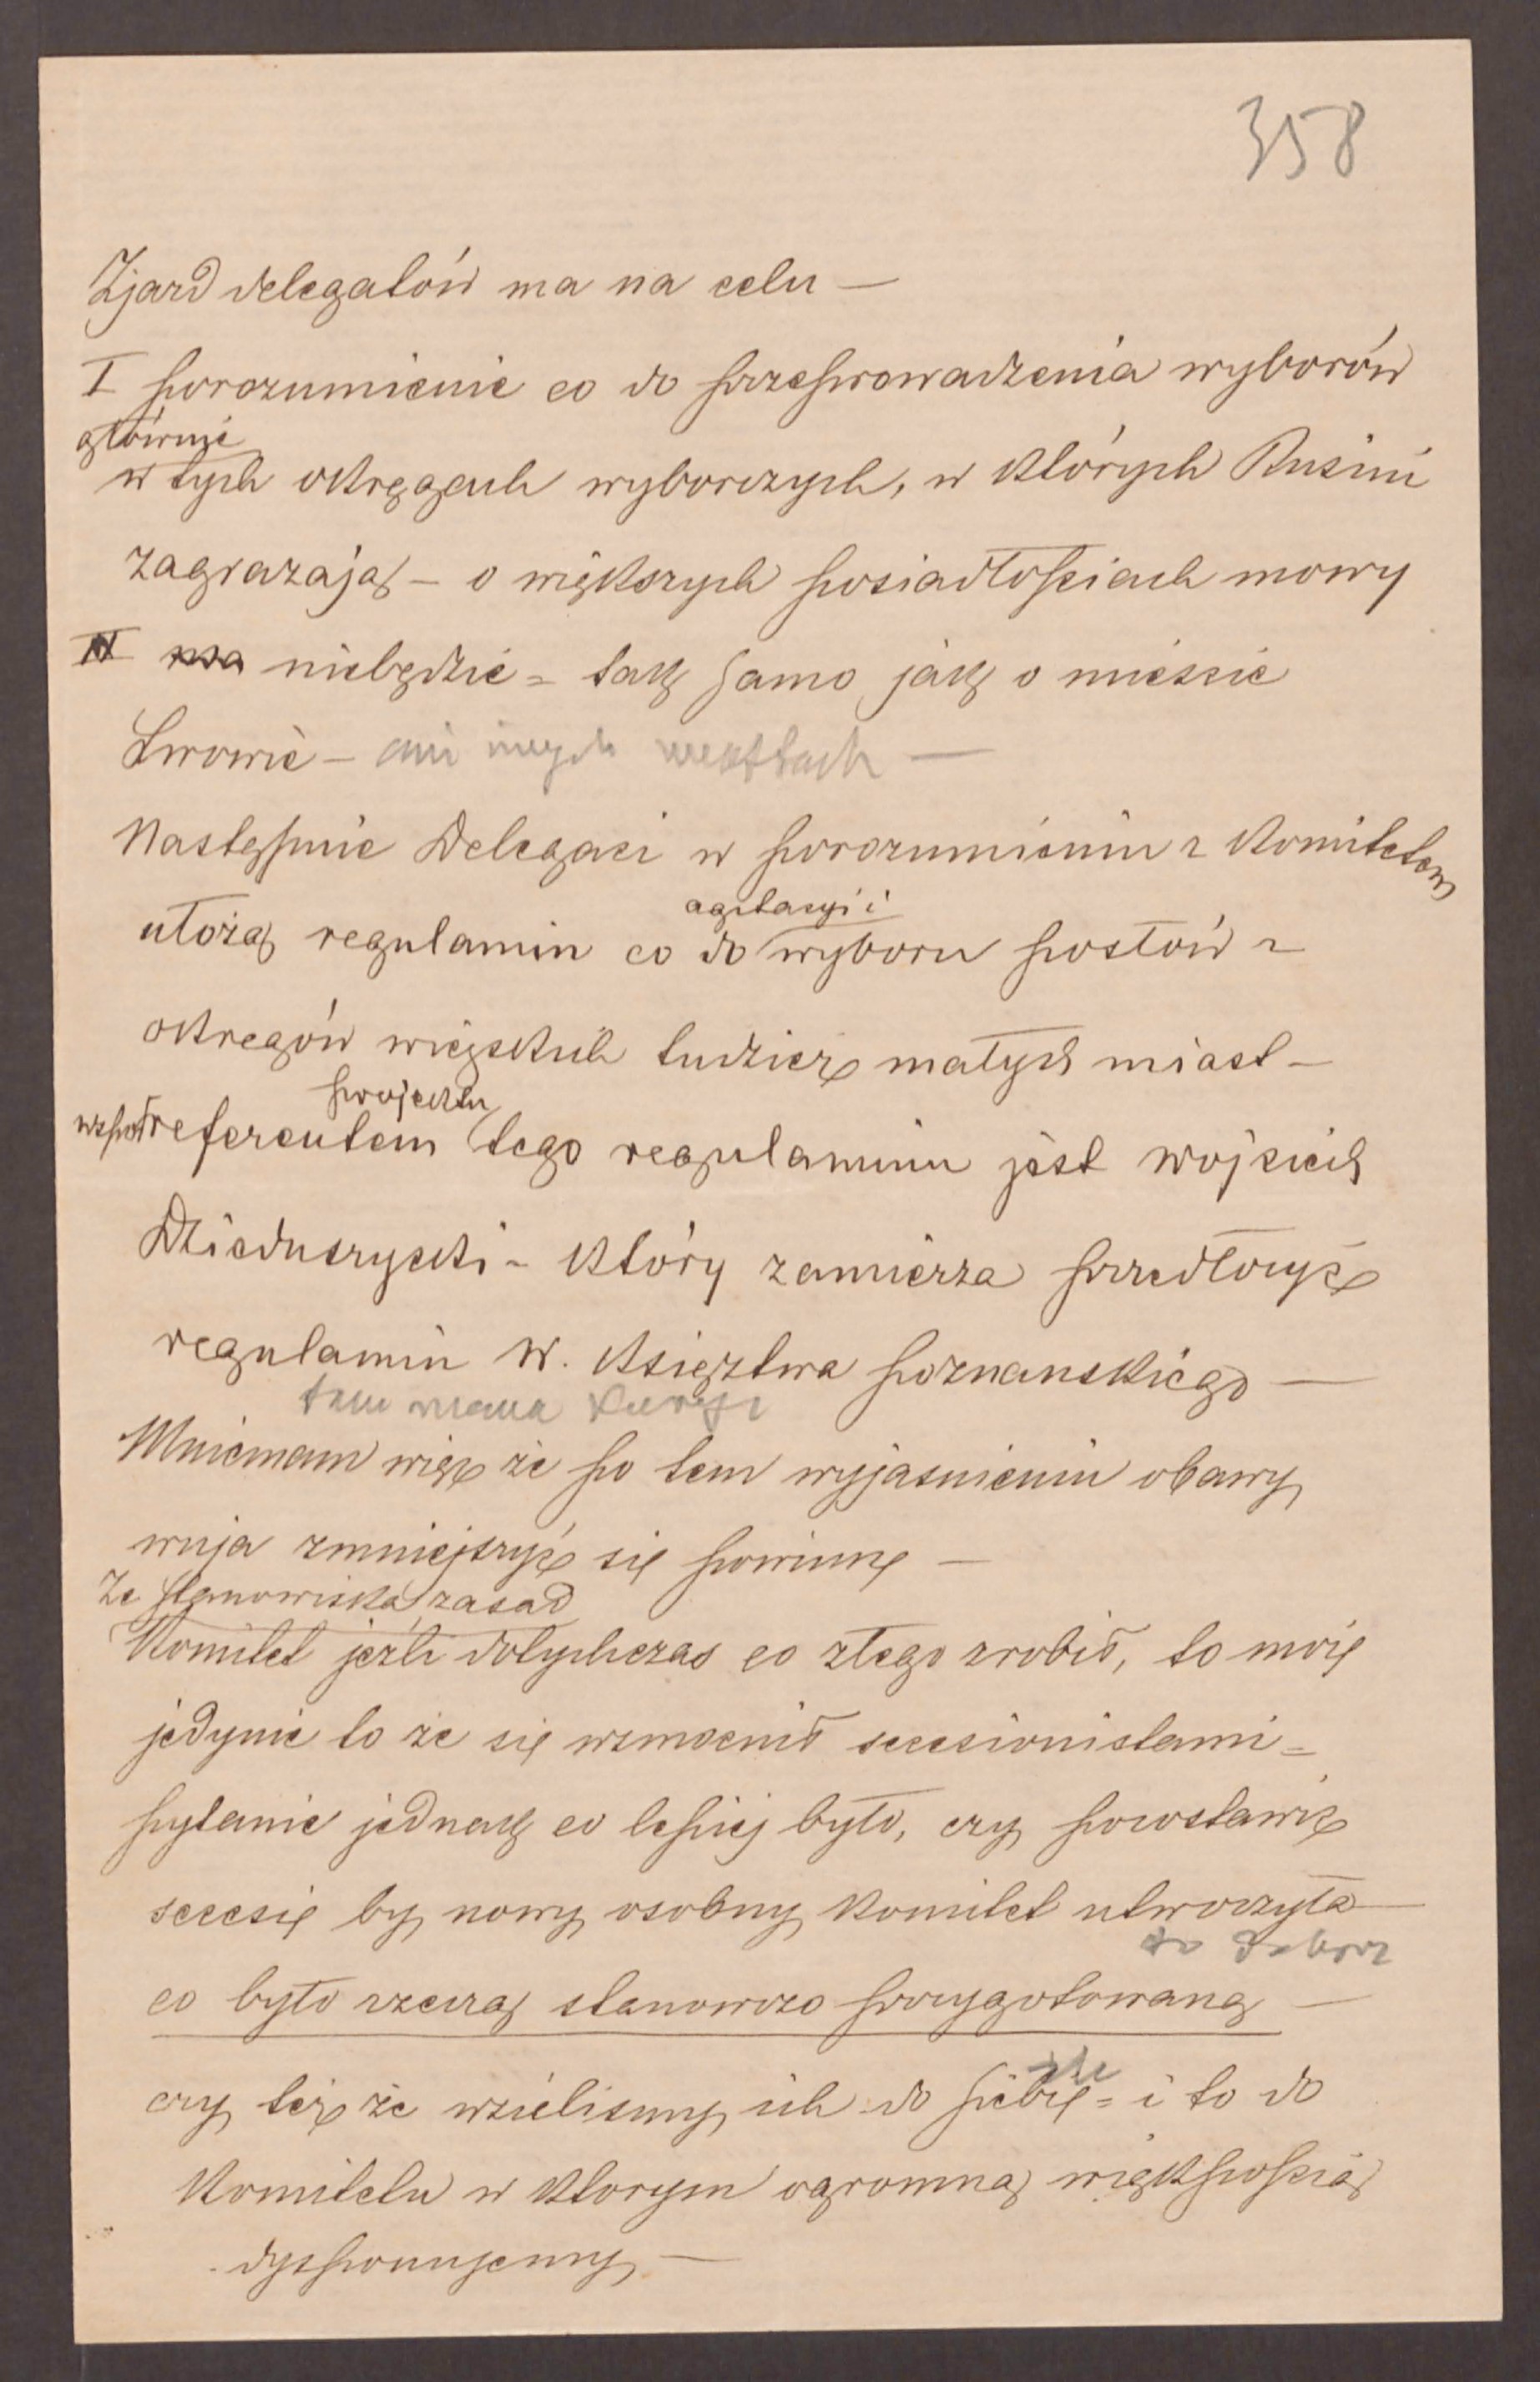 358
Zjazd delegatów ma na celu —
I porozumienie co do przeprowadzenia wyborów
głównie
w tych okręgach wyborczych, w których Rusini
zagrażają – o większych posiadłościach mowy
II niebędzie = tak samo jak o mieście
Lwowie – ani innych miastach —
Następnie Delegaci w porozumieniu z Komitetem
agitacyi i
ułożą regulamin co do wyboru posłów z
okregów wiejskich tudzież małych miast –
projektu
współreferentem tego regulaminu jest Wojciech
Dzieduszycki – który zamierza przedłożyć
regulamin W. Księztwa poznanskiego —
tem
Mniemam więc że po tem wyjasnieniu obawy
wuja zmniejszyć się powinny —
Ze stanowiska zasad
Komitet jeżli dotychczas co złego zrobił, to może
jedynie to że się wzmocnił secesionistami =
pytanie jednak co lepiej było, czy pozostawić
secesię by nowy osobny Komitet utworzyła —
to dobrze
co było rzeczą stanowczo przygotowaną —
źle
czy też że wzielismy ich do siebie = i to do
Komitetu w ktorym ogromną większością
dysponujemy —